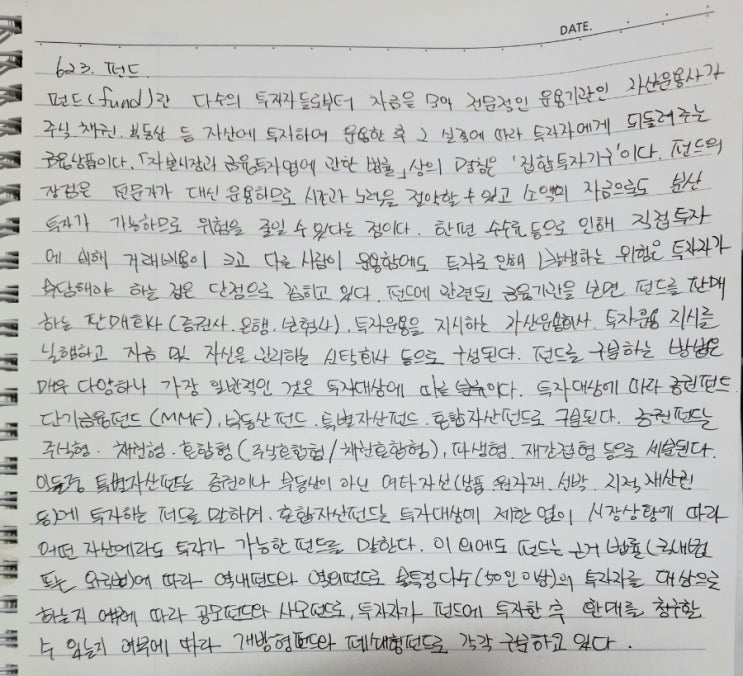 DATE.
623. 펀드
펀드(fund)란 다수의 투자자들로부터 자금을 모아 전문적인 운용기관인 자산운용사가
주식. 채권. 부동산 등 자산에 투자하여 운용한 후 그 실적에 따라 투자자에게 되돌려주는
금융상품이다. 「자본시장과 금융투자업에 관한 법률」상의 명칭은 '집합투자기구'이다. 펀드의
장점은 전문가가 대신 운용하므로 시간과 노력을 절약할 수 있고 소액의 자금으로도 분산
투자가 가능하므로 위험을 줄일 수 있다는 점이다. 한편 수수료 등으로 인해 직접투자
에 비해 거래비용이 크고 다른 사람이 운용함에도 투자로 인해 발생하는 위험은 투자자가
부담해야 하는 점은 단점으로 꼽히고 있다. 펀드에 관련된 금융기관을 보면 펀드를 판매
하는 판매회사(증권사. 은행. 보험사). 투자운용을 지시하는 자산운용회사. 투자운용 지시를
실행하고 자금 및 자산을 관리하는 신탁회사 등으로 구성된다. 펀드를 구분하는 방법은
매우 다양하나 가장 일반적인 것은 투자대상에 따른 분류이다. 투자대상에 따라 증권펀드.
단기금융펀드(MMF), 부동산펀드. 특별자산펀드. 혼합자산펀드로 구분된다. 증권펀드는
주식형. 채권형. 혼합형(주식혼합형/채권혼합형), 파생형. 재간접형 등으로 세분된다.
이들중 특별자산펀드는 증권이나 부동산이 아닌 여타자산(상품. 원자재. 선박. 지적재산권
등)에 투자하는 펀드를 말하며. 혼합자산펀드는 투자대상에 제한 없이 시장상황에 따라
어떤 자산에라도 투자가 가능한 펀드를 말한다. 이 외에도 펀드는 근거 법률(국내법
또는 외국법)에 따라 역내펀드와 역외펀드로 불특정다수(50인 이상)의 투자자를 대상으로
하는지 여부에 따라 공모펀드와 사모펀드로, 투자자가 펀드에 투자한 후 환매를 청구할
수 있는지 여부에 따라 개방형펀드와 폐쇄형펀드로 각각 구분하고 있다.